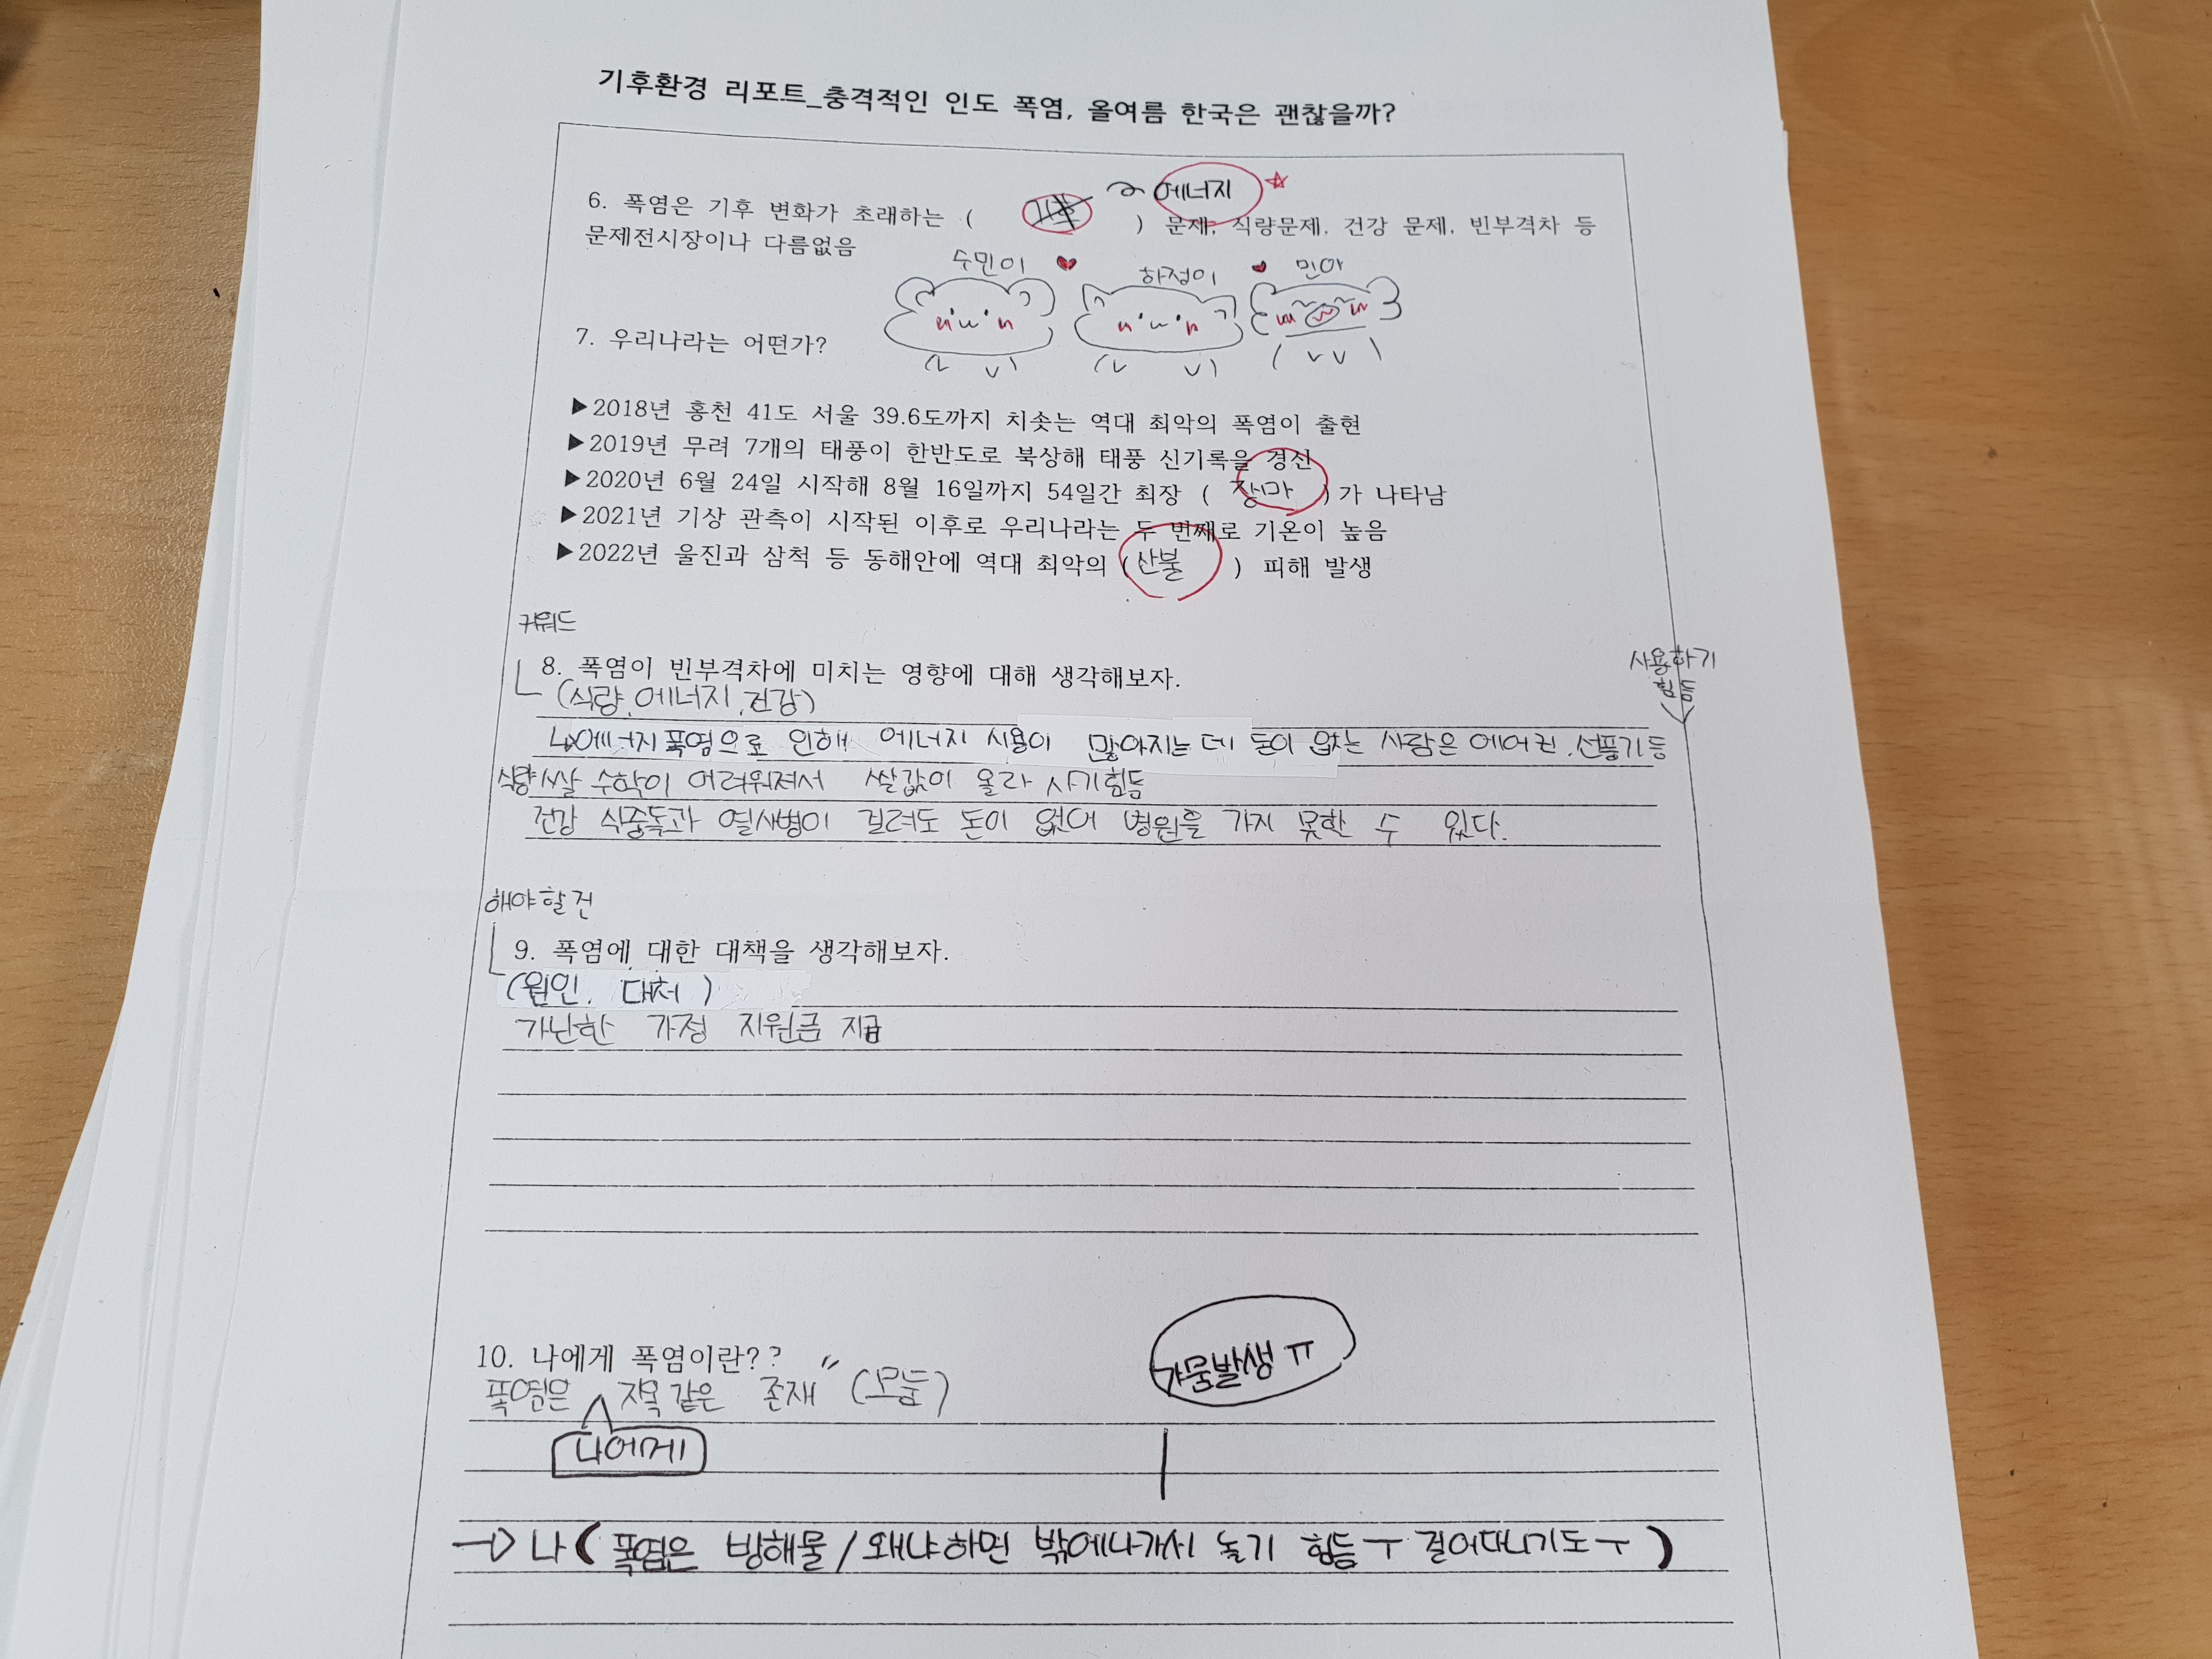 기후환경 리포트_충격적인 인도 폭염, 올여름 한국은 괜찮을까?
에너지
6. 폭염은 기후 변화가 초래하는 ( ) 문제, 식량문제, 건강 문제, 빈부격차 등
문제전시장이나 다름없음
수민이 하정이 민아
7. 우리나라는 어떤가?
▶2018년 홍천 41도 서울 39.6도까지 치솟는 역대 최악의 폭염이 출현
▶2019년 무려 7개의 태풍이 한반도로 북상해 태풍 신기록을 경신
▶2020년 6월 24일 시작해 8월 16일까지 54일간 최장 ( 장마 )가 나타남
▶2021년 기상 관측이 시작된 이후로 우리나라는 두 번째로 기온이 높음
▶2022년 울진과 삼척 등 동해안에 역대 최악의 (산불 ) 피해 발생
키워드
8. 폭염이 빈부격차에 미치는 영향에 대해 생각해보자.
(식량, 에너지, 건강)
↳에너지 폭염으로 인해 에너지 사용이 많아지는데 돈이 없는 사람은 에어컨, 선풍기 등
사용하기
힘듦
식량 쌀 수확이 어려워져서 쌀값이 올라 사기힘듬
건강 식중독과 열사병이 걸려도 돈이 없어 병원을 가지 못한 수 있다.
해야할건
9. 폭염에 대한 대책을 생각해보자.
(원인, 대처)
가난한 가정 지원금 지급
10. 나에게 폭염이란??
폭염은 지옥 같은 존재" (모둠)
나에게
가뭄발생 ㅠ
→ 나 ( 폭염은 방해물 / 왜냐하면 밖에나가서 놀기 힘듬ㅜ 걸어다니기도ㅜ )